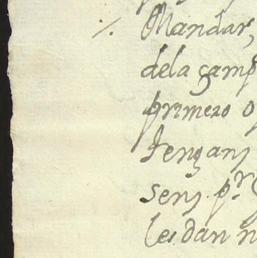 Mandar,
dela camp
primero o
tengan
sens. pr
les dan n